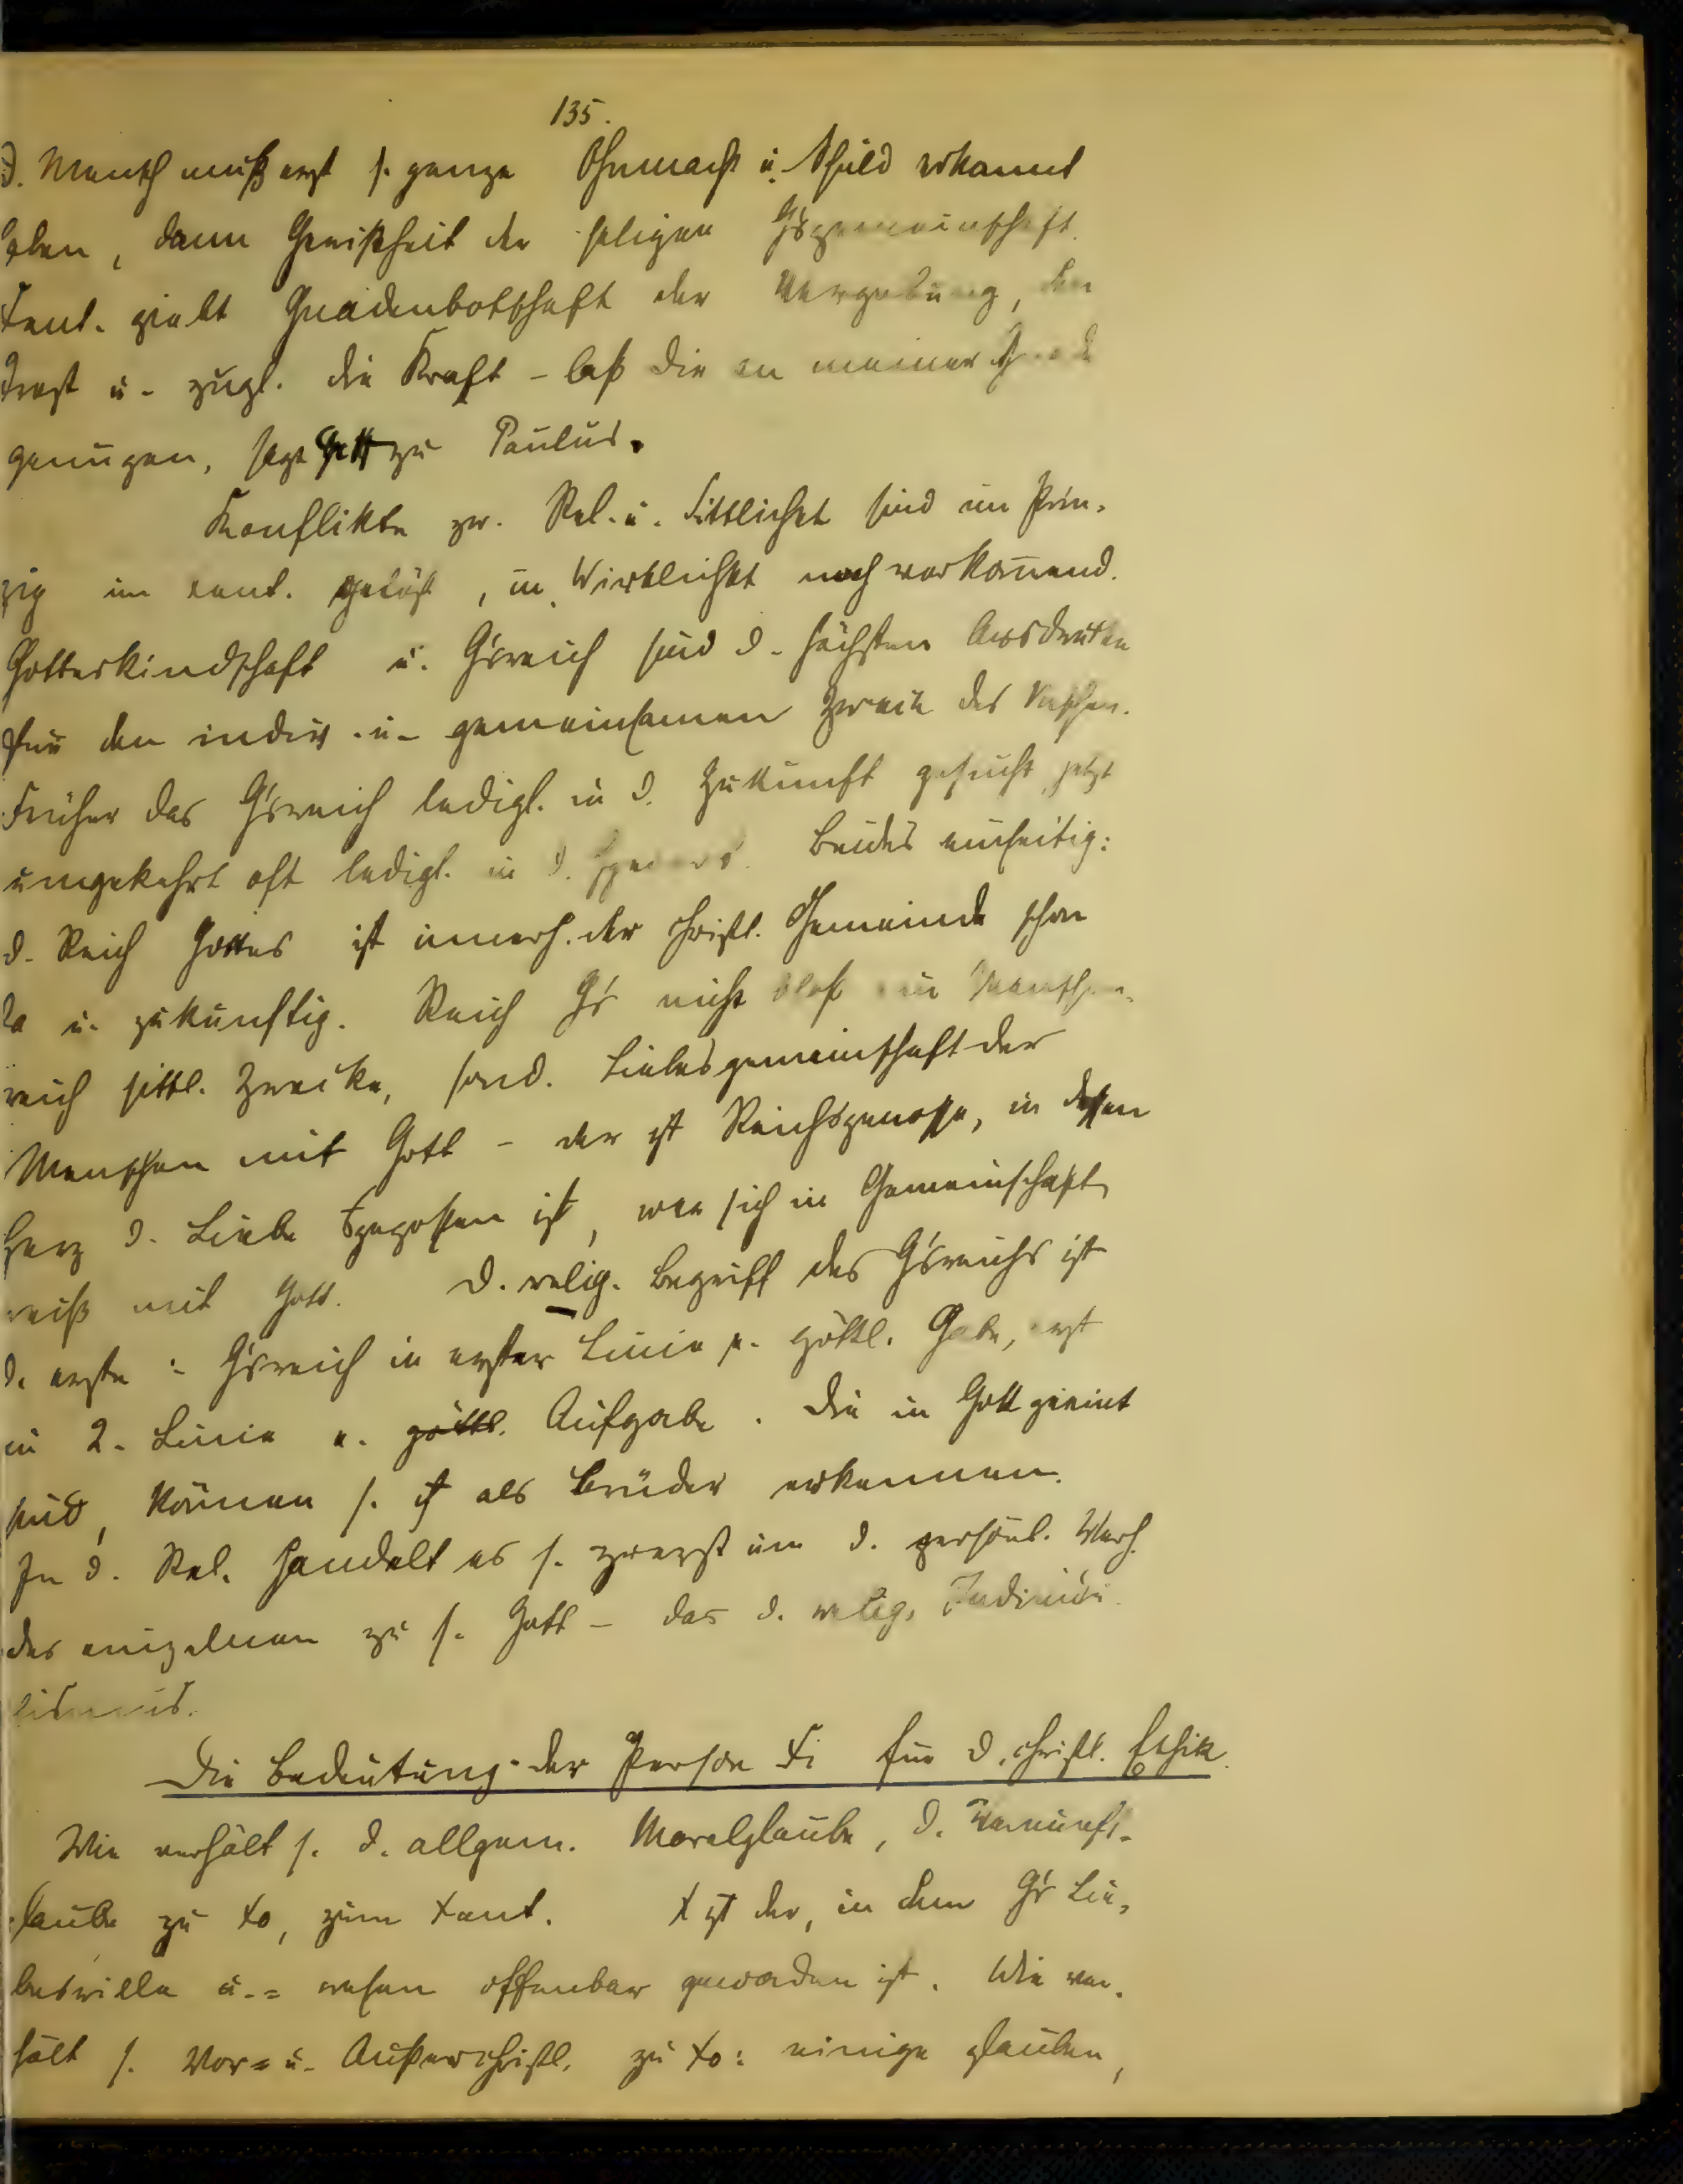 135.
D. Mensch muß erst s. ganze Ohnmacht u. Schuld erkannt
haben, dann Gewißheit der seligen Gsgemeinschaft.
Xent. giebt Gnadenbotschaft der Vergebung, den
Trost u. zugl. die Kraft - laß dir an meiner Gnade
genügen, sagt Gott zu Paulus.
Konflikte zw. Rel. u. Sittlichkt sind im Prin-
zip im Xent. gelöst, in Wirklichkt noch vorkom̄end.
Gotteskindschaft u. Gsreich sind d. höchsten Ausdrücke
für den indiv. u. gemeinsamen Zweck des
Früher das Gsreich ledigl. in d. Zukunft gesucht, jetzt
umgekehrt oft ledigl. in d. Beides einseitig:
d. Reich Gottes ist innerh. der christl. Gemeinde schon
da u. zukünftig. Reich Gs nicht bloß ein Menschen-
reich sittl. Zwecke, sond. Liebesgemeinschaft der
Menschen mit Gott - der ist Reichsgenosse, in dessen
Herz d. Liebe Gs gegossen ist, wer sich in Gemeinschaft
weiß mit Gott. D. relig. Begriff des Gsreichs ist
d. erste: Gsreich in erster Linie e. göttl. Gabe, erst
in 2. Linie e. göttl. Aufgabe. Die in Gott geeint
sind, können s. als Brüder erkennen.
In d. Rel. handelt es s. zuerst um d. persönl. Verh.
des einzelnen zu s. Gott - das d. relig. Individua-
lismus.
Die Bedeutung der Person Xi für d. christl. Ethik.
Wie verhält s. d. allgem. Moralglaube, d. Vernunft-
glaube zu Xo, zum Xent. X ist der, in dem Gs Lie-
beswille u. = wesen offenbar geworden ist. Wie ver-
hält s. Vor= u. Außerchristl. zu Xo: einige glauben,